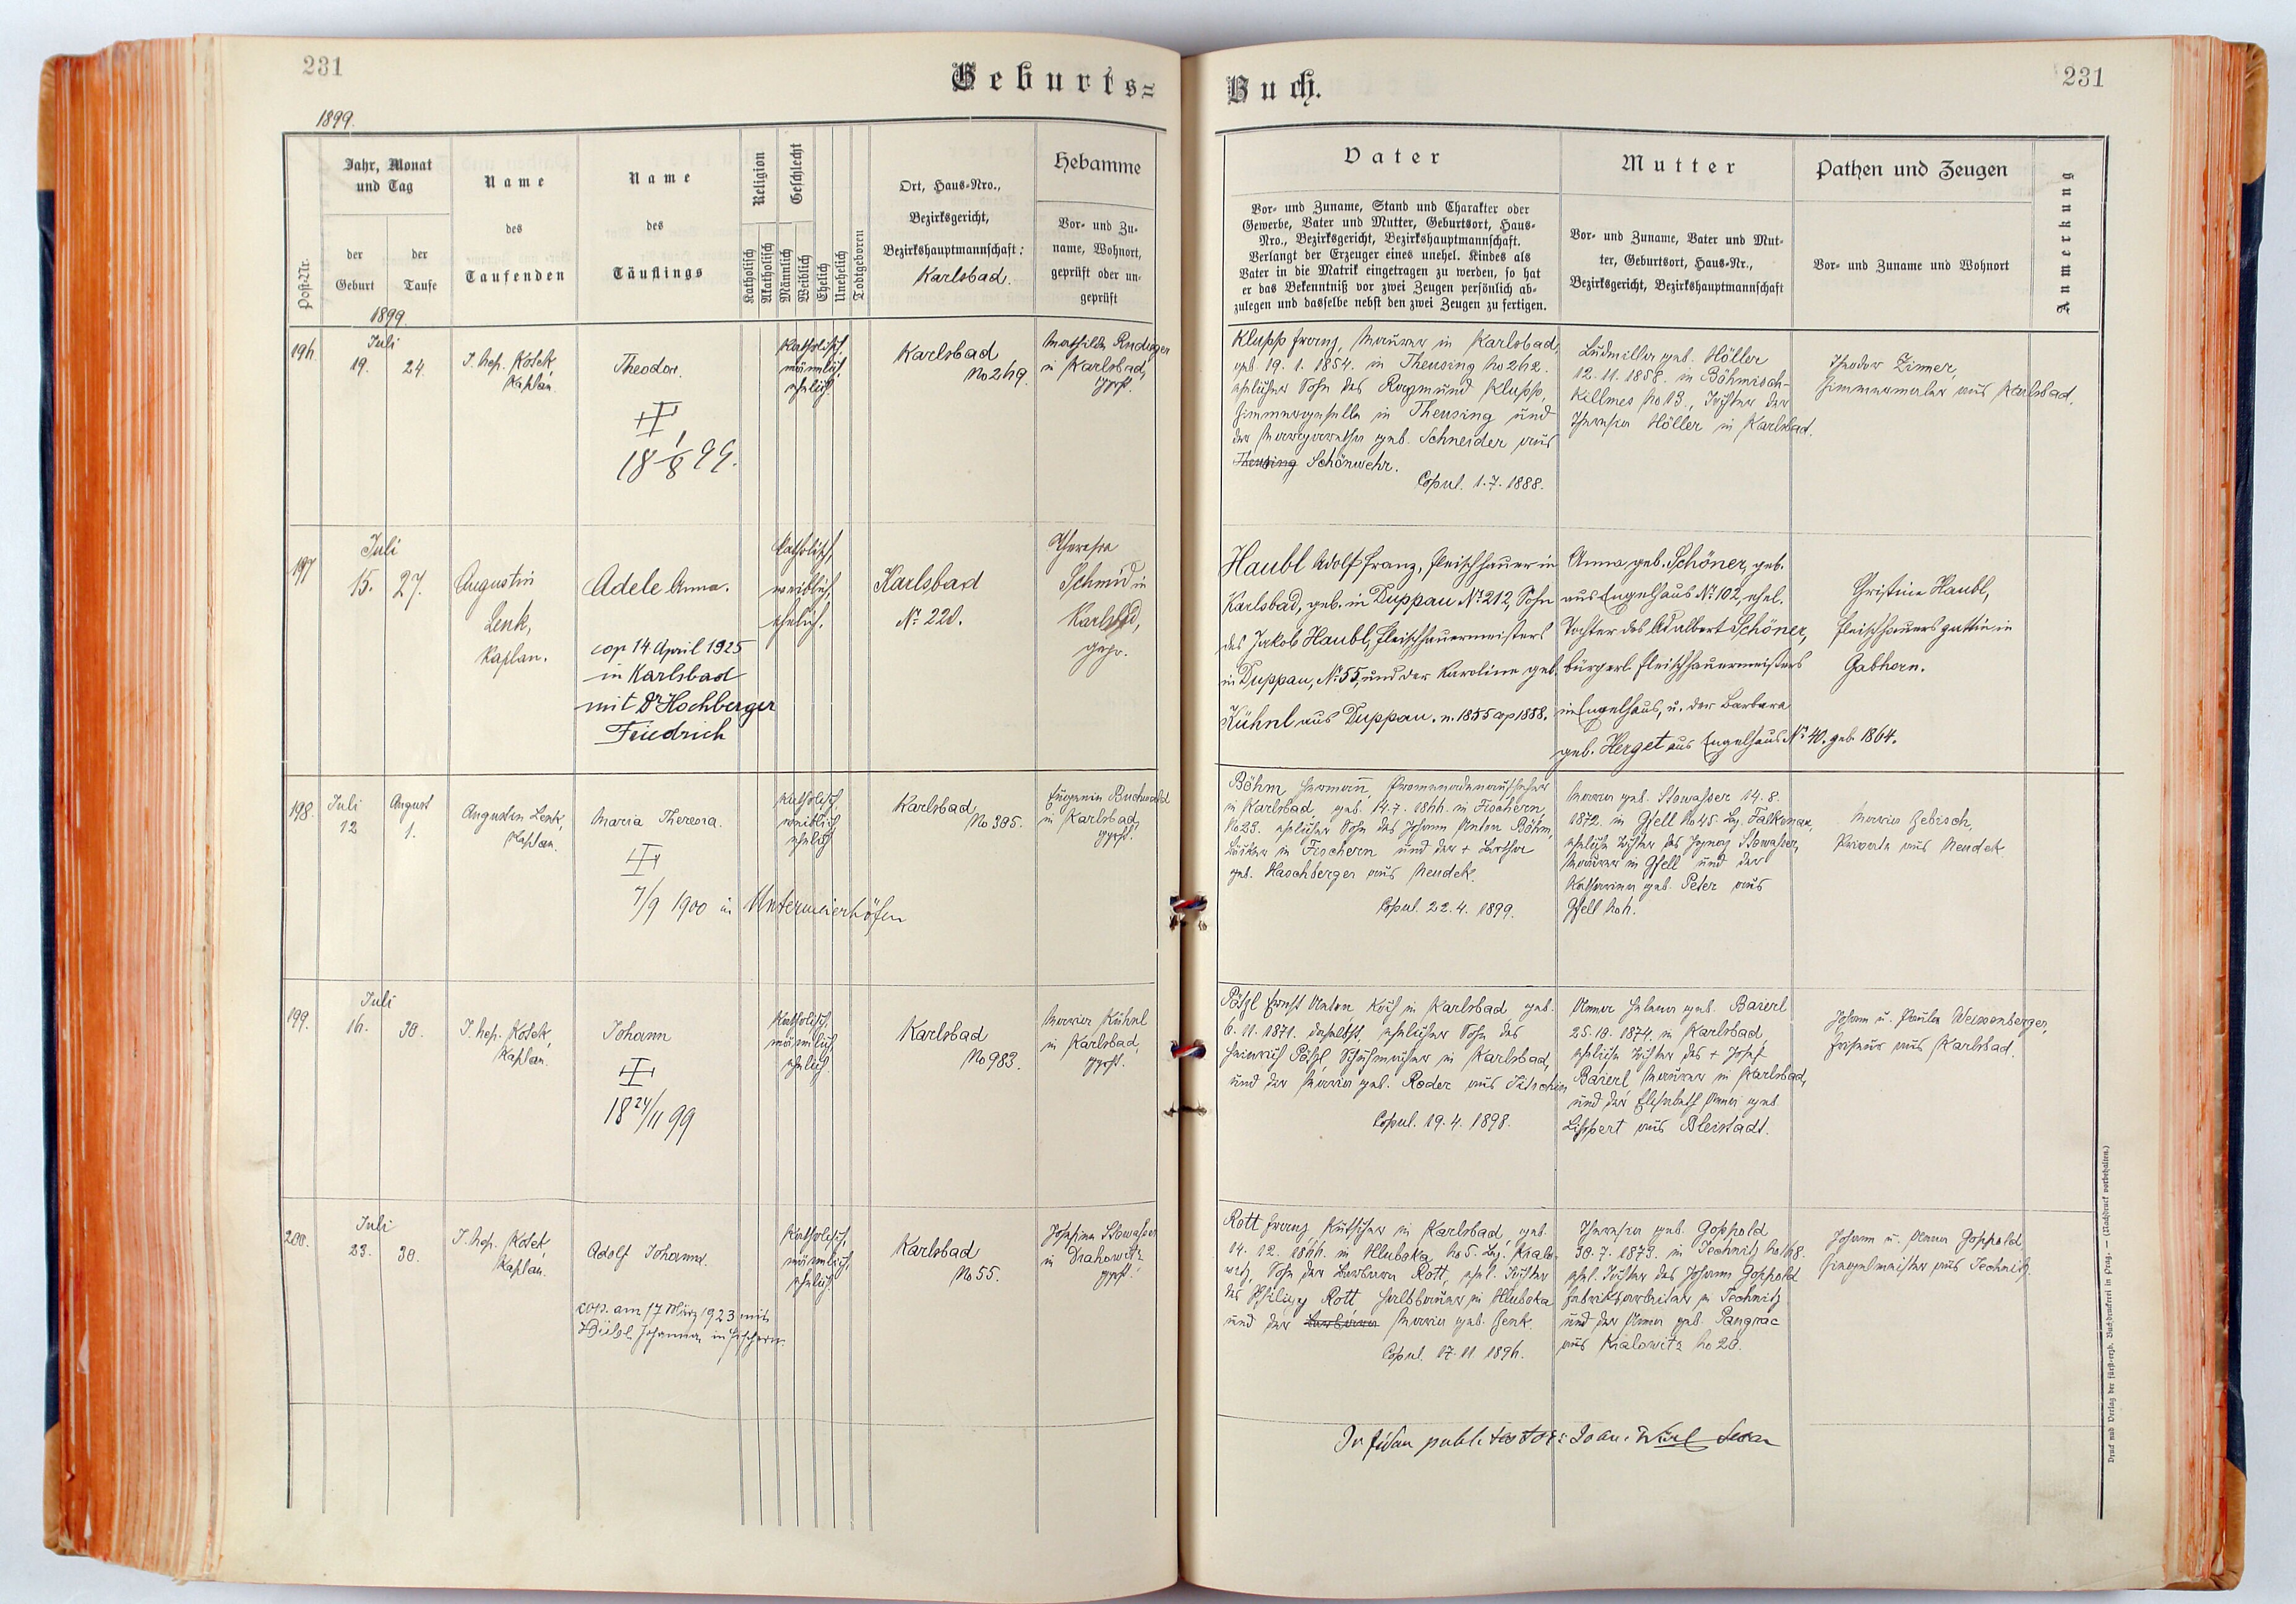 231
Geburts=
1899.
Post-Nr.
Jahr, Monat
und Tag
der
Geburt
der
Taufe
Name
des
Taufenden
Name
des
Täuflings
Religion
Katholisch
Akatholisch
Geschlecht
Männlich
Weiblich
Ehelich
Unehelich
Todtgeboren
Ort, Haus-Nro.,
Bezirksgericht,
Bezirkshauptmannschaft:
Karlsbad.
Hebamme
Vor- und Zu-
name, Wohnort,
geprüft oder un-
geprüft
1899.
196.
Juli
19. 24.
J. Nep. Kosek,
Kaplan.
Theodor.
18 1/8 99.
Katholisch,
männlich,
ehelich.
Karlsbad
No 269.
Mathilde
in Karlsbad,
gepr.
197
Juli
15. 27.
Augustin
Lenk,
Kaplan.
Adele Anna.
cop 14 April 1925
in Karlsbad
mit Dr Hochberger
Friedrich
Katholisch,
weiblich,
ehelich.
Karlsbad
No 220.
Theresia
Schmid in
Karlsbad,
gepr.
198.
Juli
12
August
1.
Augustin Lenk,
Kaplan.
Maria Theresia.
7/9 1900 in Untermeierhöfen
Katholisch,
weiblich
ehelich
Karlsbad
No 305.
Eugenie Buchwald
in Karlsbad,
geprft.
199.
Juli
16. 30.
J. Nep. Kosek,
Kaplan.
Johann
18 24/11 99
Katholisch,
männlich
ehelich.
Karlsbad
No 983.
Maria Kühnl
in Karlsbad,
geprft.
200.
Juli
23. 30.
J. Nep. Kosek,
Kaplan.
Adolf Johann.
cop. am 17 März 1923 mit
Johanna in Fischern.
Katholisch,
männlich,
ehelich.
Karlsbad
No 55.
Josefine Stowasser
in Drahowitz
geprft.
Buch.
231
Vater
Vor- und Zuname, Stand und Charakter oder
Gewerbe, Vater und Mutter, Geburtsort, Haus-
Nro., Bezirksgericht, Bezirkshauptmannschaft.
Verlangt der Erzeuger eines unehel. Kindes als
Vater in die Matrik eingetragen zu werden, so hat
er das Bekenntniß vor zwei Zeugen persönlich ab-
zulegen und dasselbe nebst den zwei Zeugen zu fertigen.
Mutter
Vor- und Zuname, Vater und Mut-
ter, Geburtsort, Haus-Nr.,
Bezirksgericht, Bezirkshauptmannschaft
Pathen und Zeugen
Vor- und Zuname und Wohnort
Anmerkung
Klupp Franz, Maurer in Karlsbad,
geb. 19. 1. 1854. in Theusing No 262.
ehelicher Sohn des Raymund Klupp,
Zimmergeselle in Theusing und
der Margaretha geb. Schneider aus
Theusing Schönwehr.
Copul. 1. 7. 1888.
Ludmilla geb. Höller
12. 11. 1858. in Böhmisch-
Killmes No 13., Tochter der
Theresia Höller in Karlsbad.
Theodor Zimer,
Zimmermaler aus Karlsbad.
Haubl Adolf Franz, Fleischhauer in
Karlsbad, geb. in Duppau No 212, Sohn
des Jakob Haubl, Fleischhauermeisters
in Duppau, No 55, und der Karoline geb.
Kühnl aus Duppau. n. 1855 cop 1888.
Anna geb. Schöner, geb.
aus Engelhaus No 102, ehel.
Tochter des Adalbert Schöner,
bürgerl. Fleischhauermeisters
in Engelhaus, u. der Barbara
geb. Herget aus Engelhaus No 40. geb. 1864.
Christine Haubl,
Fleischhauersgattin in
Gabhorn.
Böhm Hermann, Promenadenaufseher
in Karlsbad, geb. 14. 7. 1866. in Fischern,
No 23. ehelicher Sohn des Johann Anton Böhm,
Bäcker in Fischern und der + Bertha
geb. Haschberger aus Neudek.
Copul. 22. 4. 1899.
Maria geb. Stowasser 14. 8.
1872. in Gfell No 45. Bez. Falkenau,
eheliche Tochter des Ignaz Stowasser,
Maurer in Gfell und der
Katharina geb. Peter aus
Gfell No 6.
Maria Gebisch,
Private aus Neudek
Pötzl Ernst Anton Koch in Karlsbad geb.
6. 11. 1871. daselbst, ehelicher Sohn des
Heinrich Pötzl, Schuhmacher in Karlsbad,
und der Maria geb. Roder aus
Copul. 19. 4. 1898.
Anna Helena geb. Baierl
25. 10. 1874. in Karlsbad,
eheliche Tochter des + Josef
Baierl Maurer in Karlsbad,
und der Elisabeth Anna geb.
Lippert aus Bleistadt.
Johann u. Paula Weissenberger,
Friseur aus Karlsbad.
Rott Franz, Kutscher in Karlsbad, geb.
14. 12. 1866. in Hluboka No 5. Bez. Kralo-
witz, Sohn der Barbara Rott, ehel. Tochter
des Philipp Rott Halbbauer in Hluboka
und der Barbara Maria geb. Henk.
Copul. 17. 11. 1896.
Theresia geb. Goppold,
30. 7. 1873. in Technitz No 168.
ehel. Tochter des Johann Goppold
Fabriksarbeiter in Technitz
und der Anna geb. Pangrac
aus Kralowitz No 20.
Johann u. Anna Goppold
Ziegelmeister aus Technitz.
In fidem publ. testor: Joan. Dekan
Druck und Verlag der fürst-erzb. Buchdruckerei in Prag. — (Nachdruck vorbehalten.)